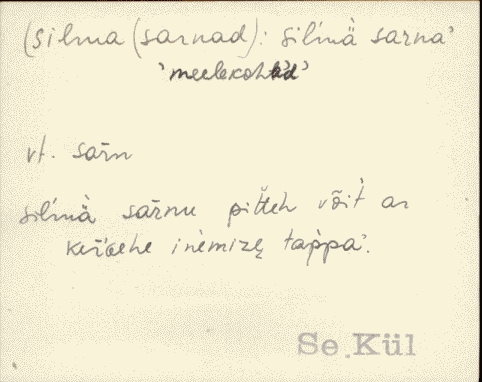 (silma (sarnad): sil'mä sarna'
'meelekohad'
vt. sārn
sil'mä sārnu pitteh võit ar
inemizę tappa'.
Se. Kül